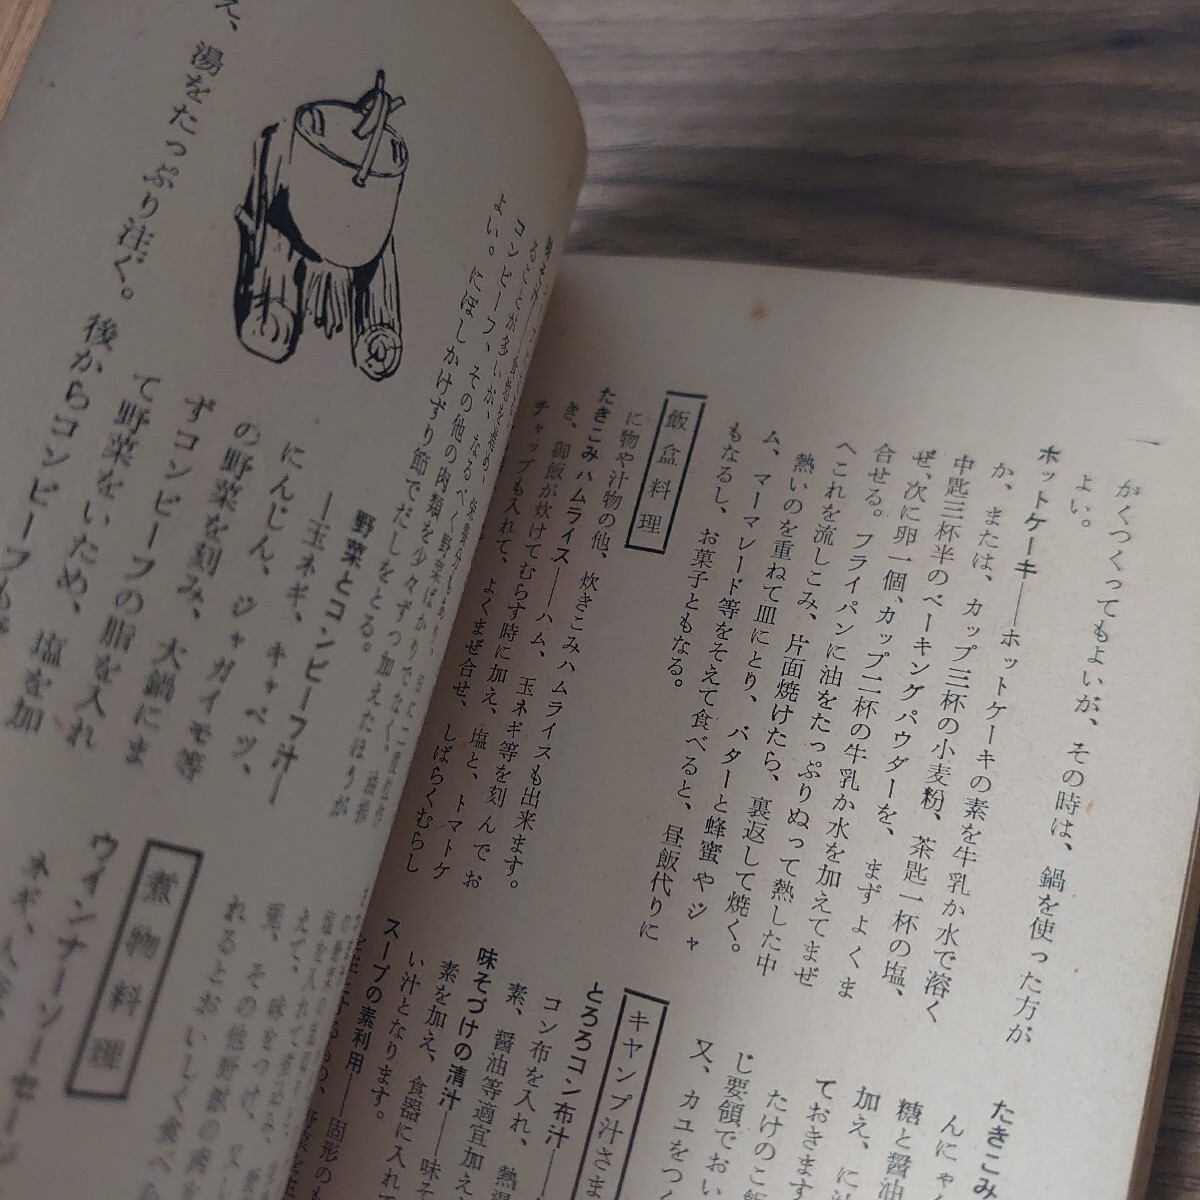 がくつくってもよいが、その時は、鍋を使った方が
よい。
ホットケーキ――ホットケーキの素を牛乳か水で溶く
か、または、カップ三杯の小麦粉、茶匙一杯の塩、
中匙三杯半のベーキングパウダーを、まずよくま
ぜ、次に卵一個、カップ二杯の牛乳か水を加えてまぜ
合せる。フライパンに油をたっぷりぬって熱した中
へこれを流しこみ、片面焼けたら、裏返して焼く。
熱いのを重ねて皿にとり、バターと蜂蜜やジャ
ム、マーマレード等をそえて食べると、昼飯代りに
もなるし、お菓子ともなる。
飯盒料理
に物や汁物の他、炊きこみハムライスも出来ます。
たきこみハムライス――ハム、玉ネギ等を刻んでお
き、御飯が炊けてむらす時に加え、塩と、トマトケ
チャップも入れて、よくまぜ合せ、しばらくむらし
たきこみ
んにゃ
糖と醤油
加え、に
ておきます
たけのこ飯
じ要領でおい
又、カユをつく
キャンプ汁さま
とろろコン布汁――
コン布を入れ、熱湯
素、醤油等適宜加え
味そづけの清汁――味そ
素を加え、食器に入れて
い汁となります。
スープの素利用――固形のも
コンビーフ、その他の肉類を少々ずつ加えたほうが
よい。にぼしかけずり節でだしをとる。
野菜とコンビーフ汁―
―玉ネギ、キャベツ、
にんじん、ジャガイモ等
の野菜を刻み、大鍋にま
ずコンビーフの脂を入れ
て野菜をいため、塩を加
え、湯をたっぷり注ぐ。後からコンビーフも
煮物料理
ウインナーソーセージ